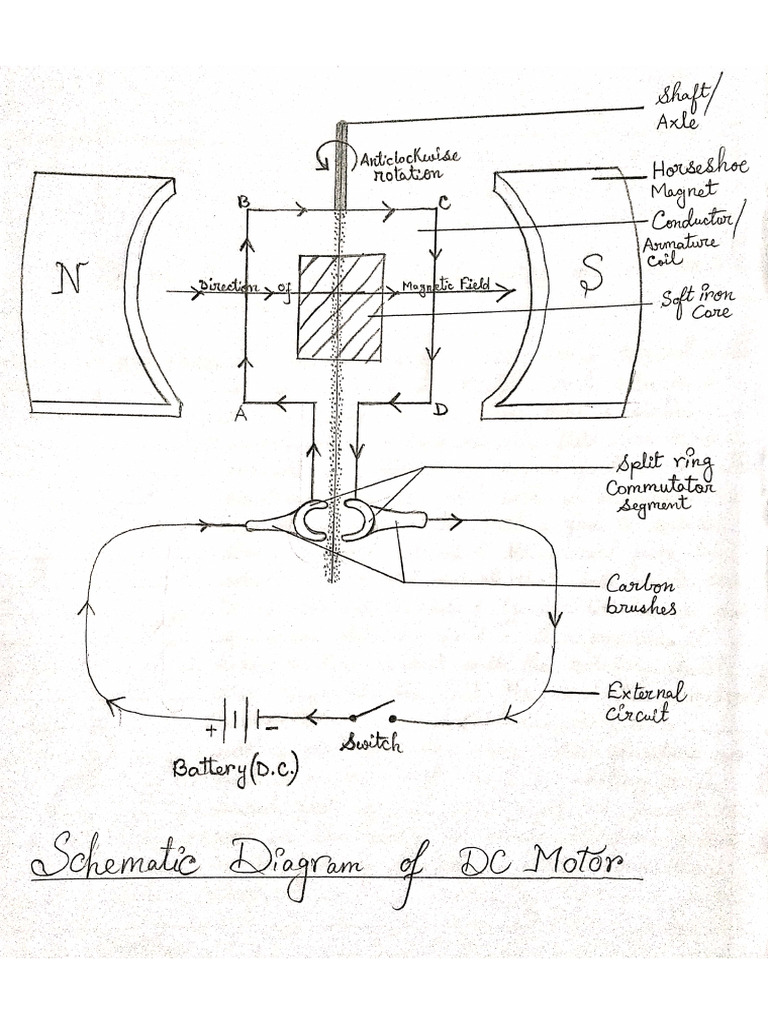 Shaft/
Axle
Anticlockwise
rotation
Horseshoe
Magnet
B
C
Conductor/
Armature
Coil
N
S
Direction Of Magnetic Field
Soft iron
Core
A
D
Split ring
Commutator
segment
Carbon
brushes
External
Circuit
+
-
Switch
Battery (D.C.)
Schematic Diagram of DC Motor